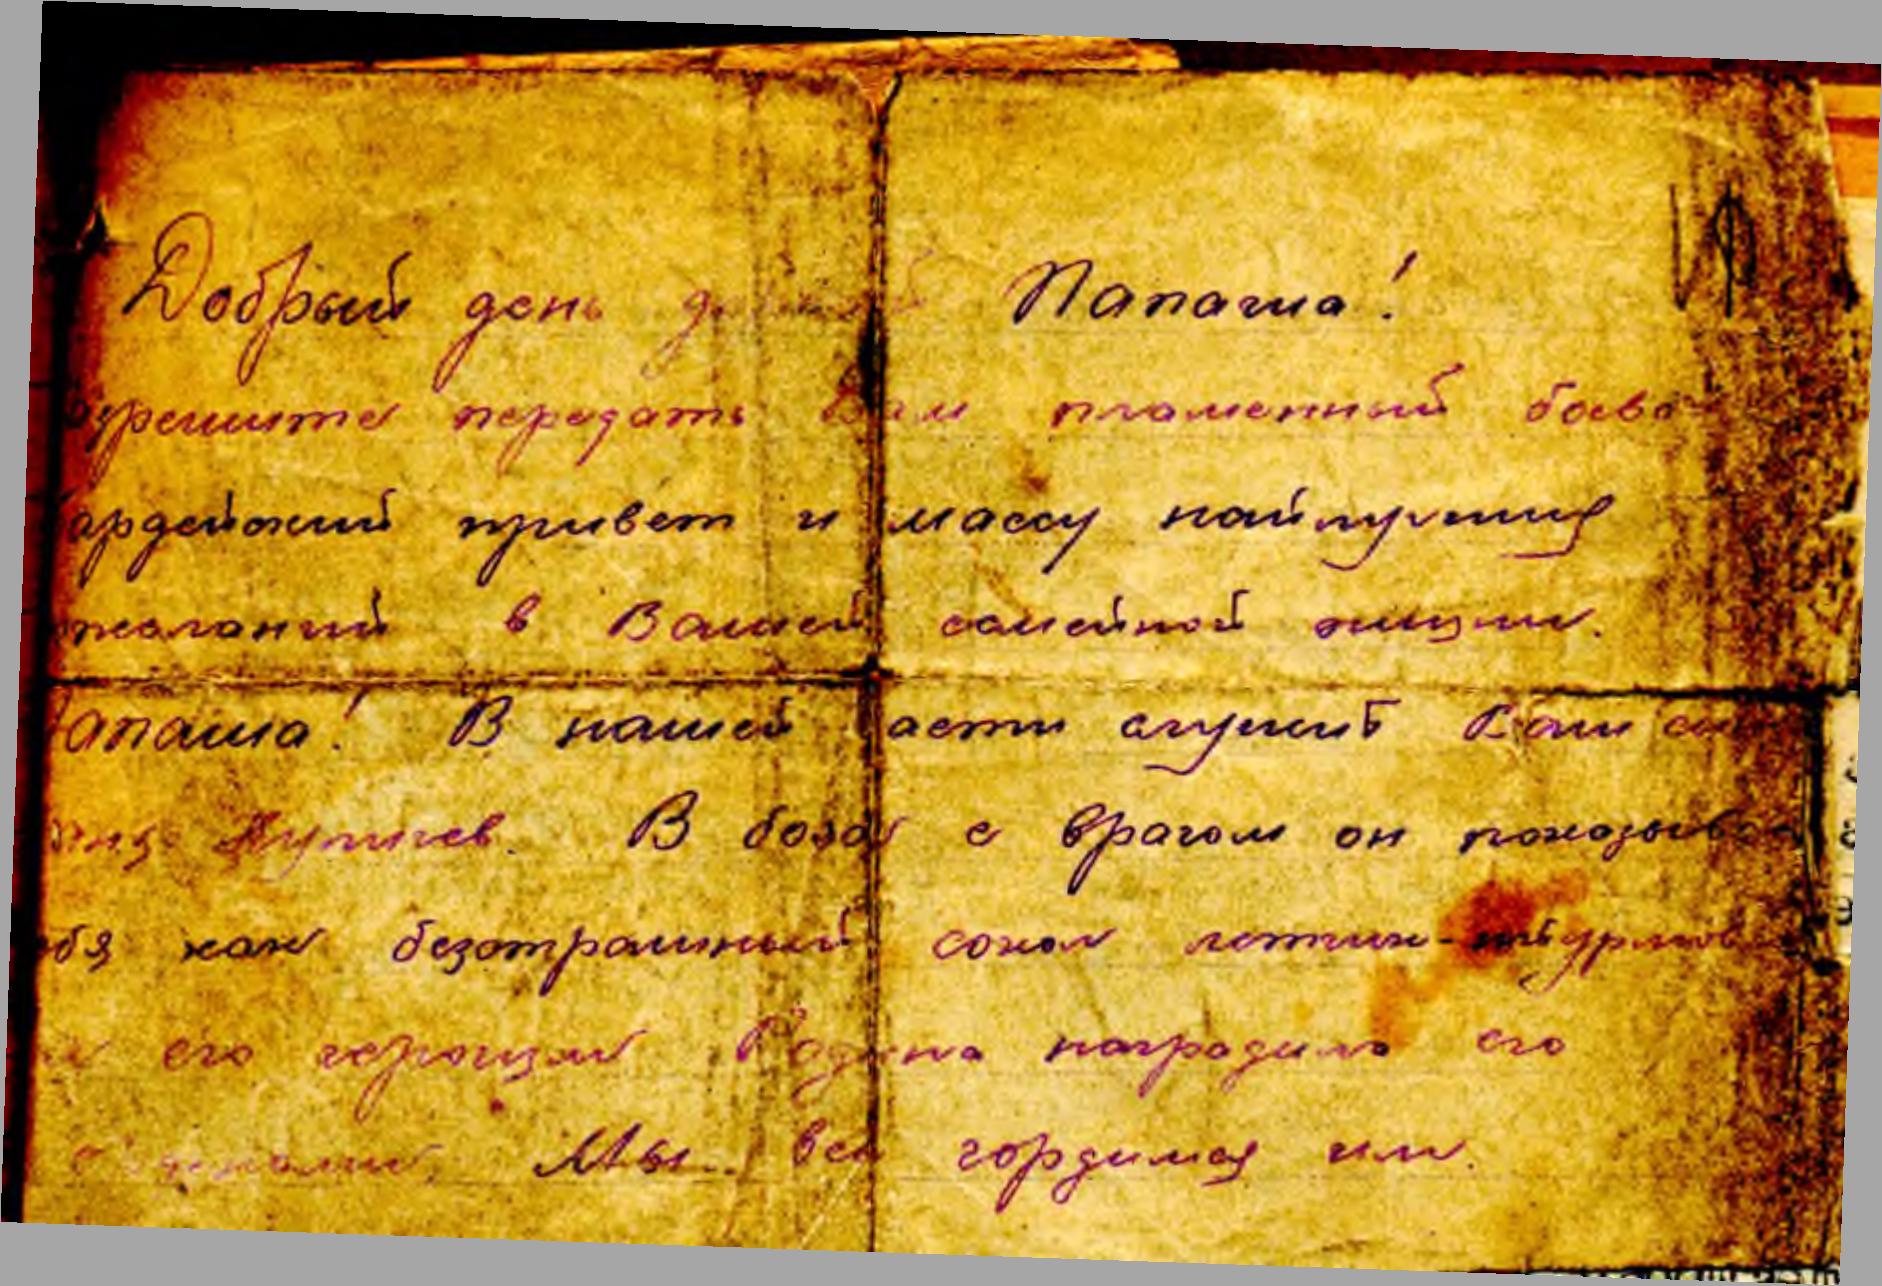 Добрый день Папаша!
передать Вам пламенный
привет и массу найлучших
в Вашей семейной жизни.
Папаша! В нашей части служит Ваш сын
Купчиев. В боях с врагом он показывает
себя как безстрашный сокол летчик-штурмовик
его героизм Родина наградила его
Мы все гордимся им.